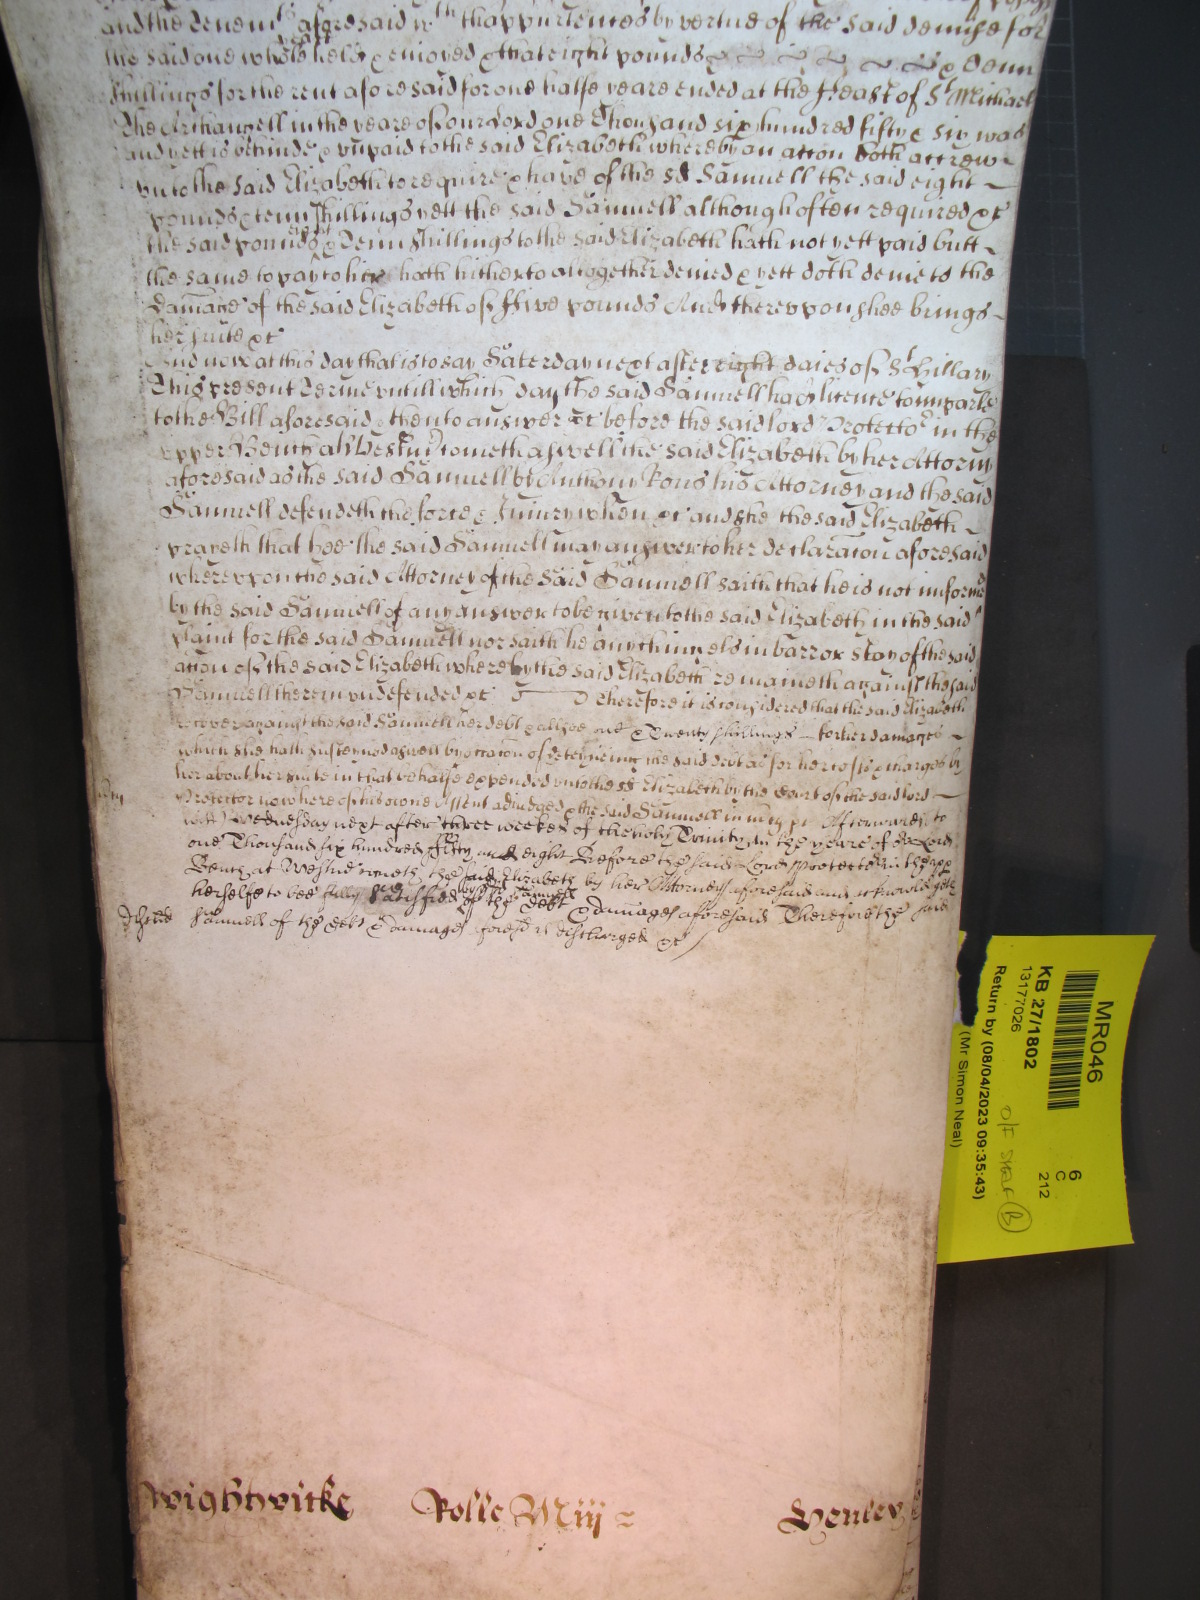 and the tenemts aforesaid wth thappurtences by vertue of the said demise for
the said one whole yeare held & enioyed & that eight pounds & Tenn
shillings for the rent aforesaid for one halfe yeare ended at the Feast of St Michael
the Archangell in the yeare of our Lord one Thousand six hundred fifty & six was
and yett is behinde & vnpaid to the said Elizabeth whereby an accon doth accrew
vnto the said Elizabeth to require & have of the sd Samuell the said eight
pounds & tenn shillings yett the said Samuell although often required &c
the said eight pounds & Tenn shillings to the said Elizabeth hath not yett paid butt
the same to pay to her hath hitherto altogether denied & yett doth denie to the
damage of the said Elizabeth of Five pounds And therevpon shee brings
her suite &c
And now at this day that is to say Saterday next after eight daies of St Hillary
This present Terme vntill which day the said Samuell had licence to imparle
to the Bill aforesaid & then to answer &c before the said lord Protector in the
vpper Bench att Westmr cometh aswell the said Elizabeth by her Attorny
aforesaid as the said Samuell by Anthony Rous his Attorney and the said
Samuell defendeth the force & Iniury when &c and the said Elizabeth
prayeth that hee the said Samuell may answer to her declaracon aforesaid
wherevpon the said Attorney of the said Samuell saith that he is not informed
by the said Samuell of any answer to be given to the said Elizabeth in the said
plaint for the said Samuell nor saith he any thing els in barr or stay of the said
accon of the said Elizabeth whereby the said Elizabeth remaineth against the said
Samuell therein vndefended &c Therefore it is considered that the said Elizabeth
recover against the said Samuell her debt & allsoe one & Twenty shillings for her damages
which she hath susteyned aswell by occacon of deteyneing the said debt as for her costs & charges by
her about her suite in that behalfe expended vnto the sd Elizabeth by the Court of the said lord
Protector now here of his owne Assent adiudged & the said Samuell in mercy &c Afterwards to
witt Wednesday next after three weekes of the holy Trinity in the yeare of our Lord
one Thousand six hundred Fifty and eight Before the said Lord Protector in the vpp
Bench at Westmr cometh the said Elizabeth by her Attorney aforesaid and acknowledgeth
herselfe to bee fully satisfied by the said Samuell of the debt & damages aforesaid Therefore the said
Samuell of the debt & damages foresd is discharged &c
Wightwicke Rolle Miij Henley
MR046
KB 27/1802
13177026
Return by (08/04/2023 09:35:43)
(Mr Simon Neal)
6
C
212
O/F SHELF B